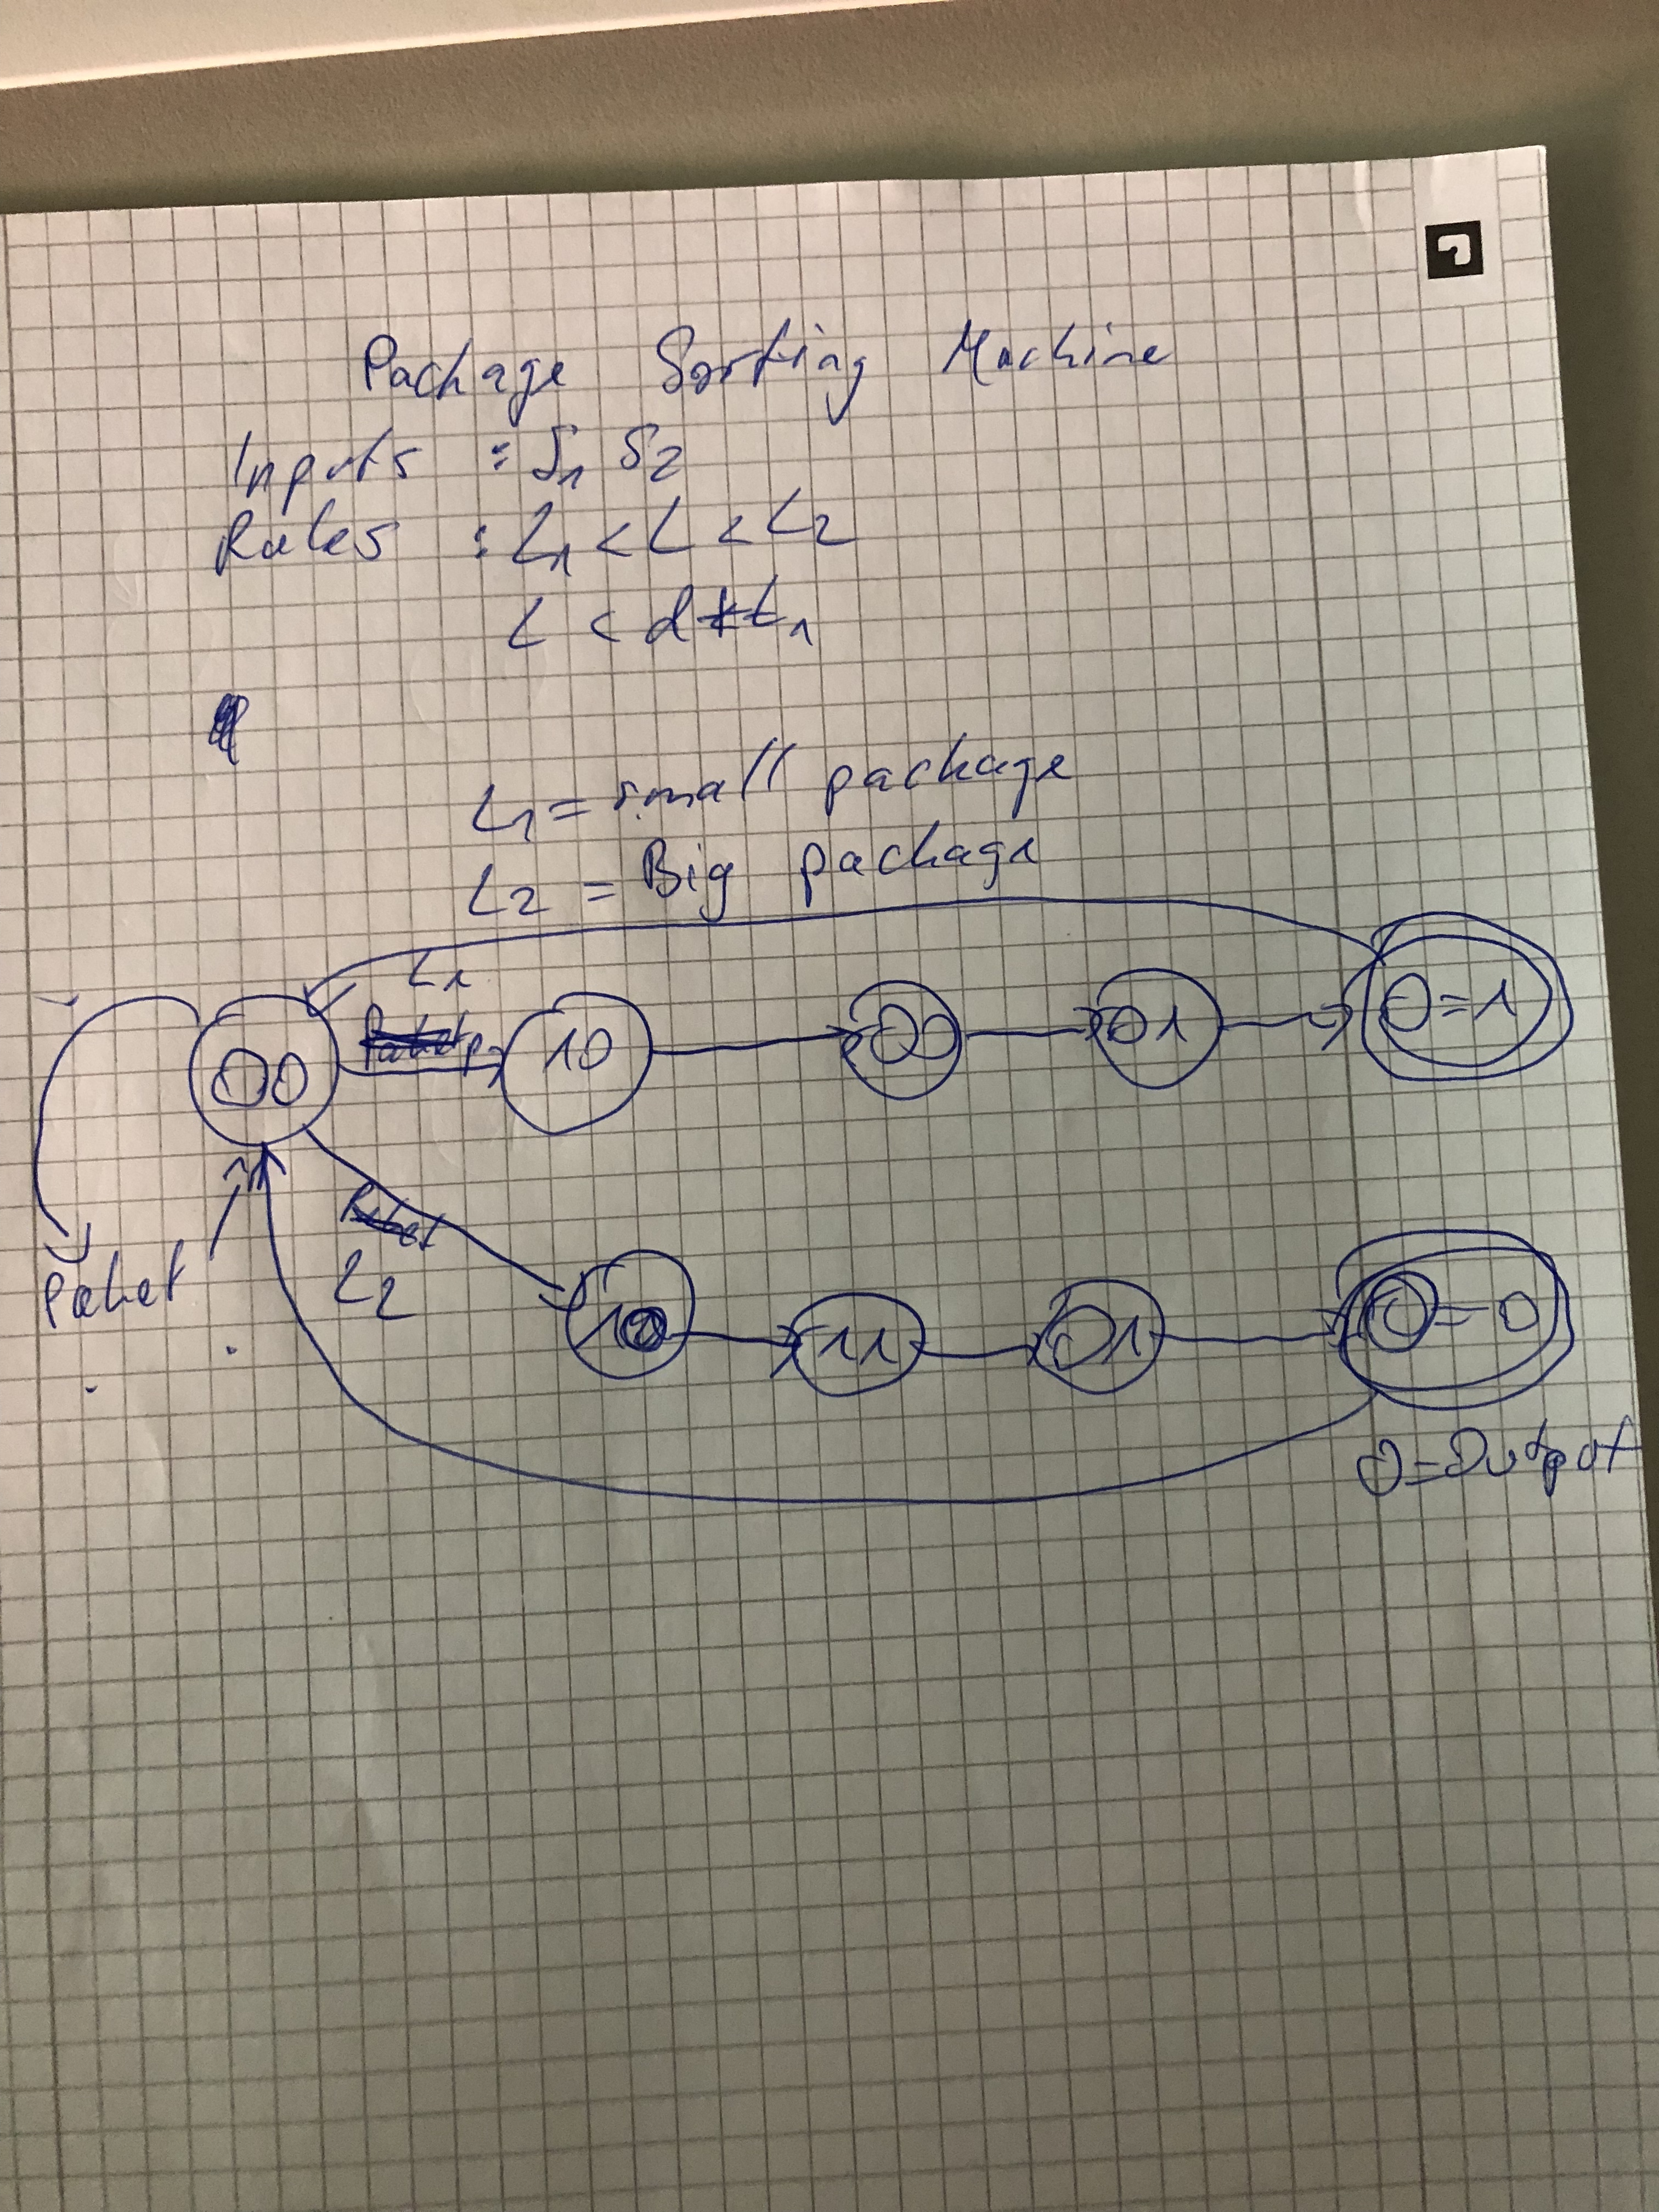 Package Sorting Machine
Inputs : S1 S2
Rules : L1 < L < L2
L < d
L1 = small package
L2 = Big package
L1
00 10 00 01 O=1
Paket
L2
10 11 01 O=0
O=Output